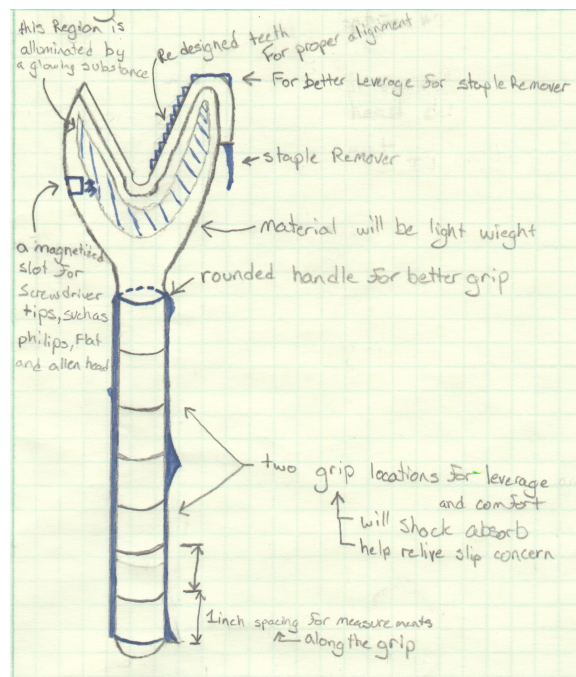 this Region is
alluminated by
a glowing substance
Redesigned teeth
For proper alignment
For better Leverage for stapleRemover
staple Remover
material will be light wieght
a magnetized
slot for
screwdriver
tips, suchas
philips, Flat
and allen head
rounded handle for better grip
two grip locations for leverage
and comfort
will shock absorb
help relive slip concern
1inch spacing for measurements
along the grip